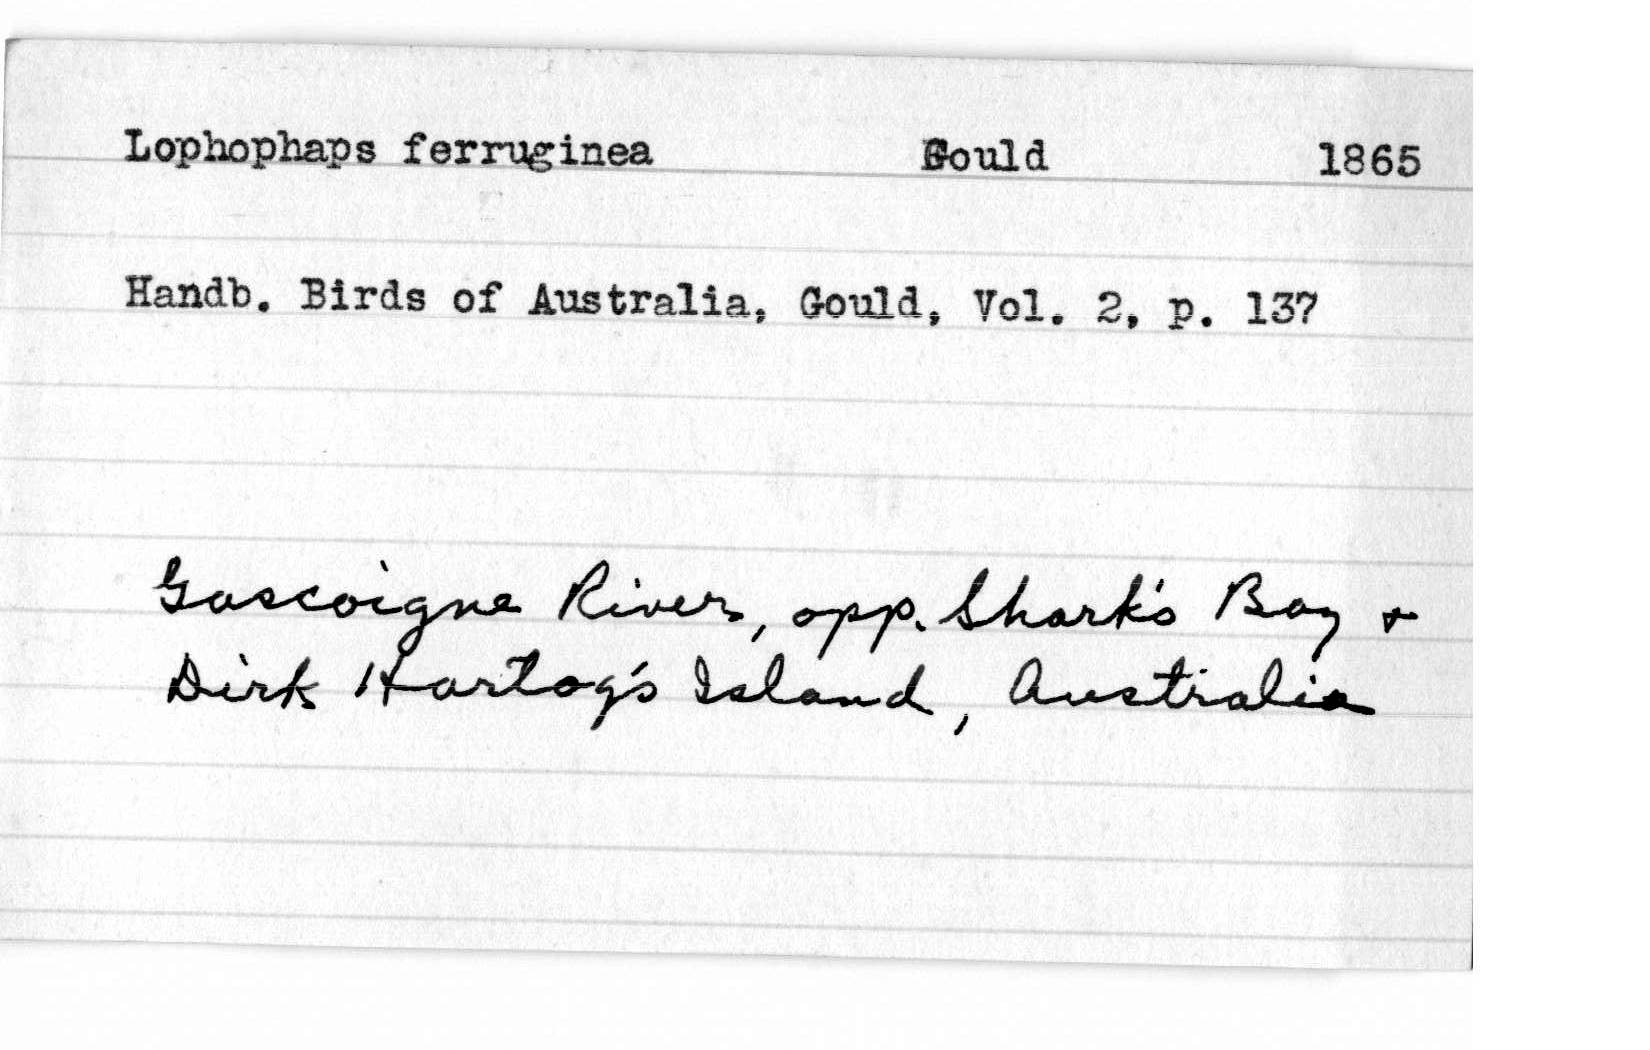 Lophophaps ferruginea Gould 1865
Handb. Birds of Australia, Gould, Vol. 2, p. 137
Gascoigne River, opp. Shark's Bay &
Dirk Hartog's Island, Australia